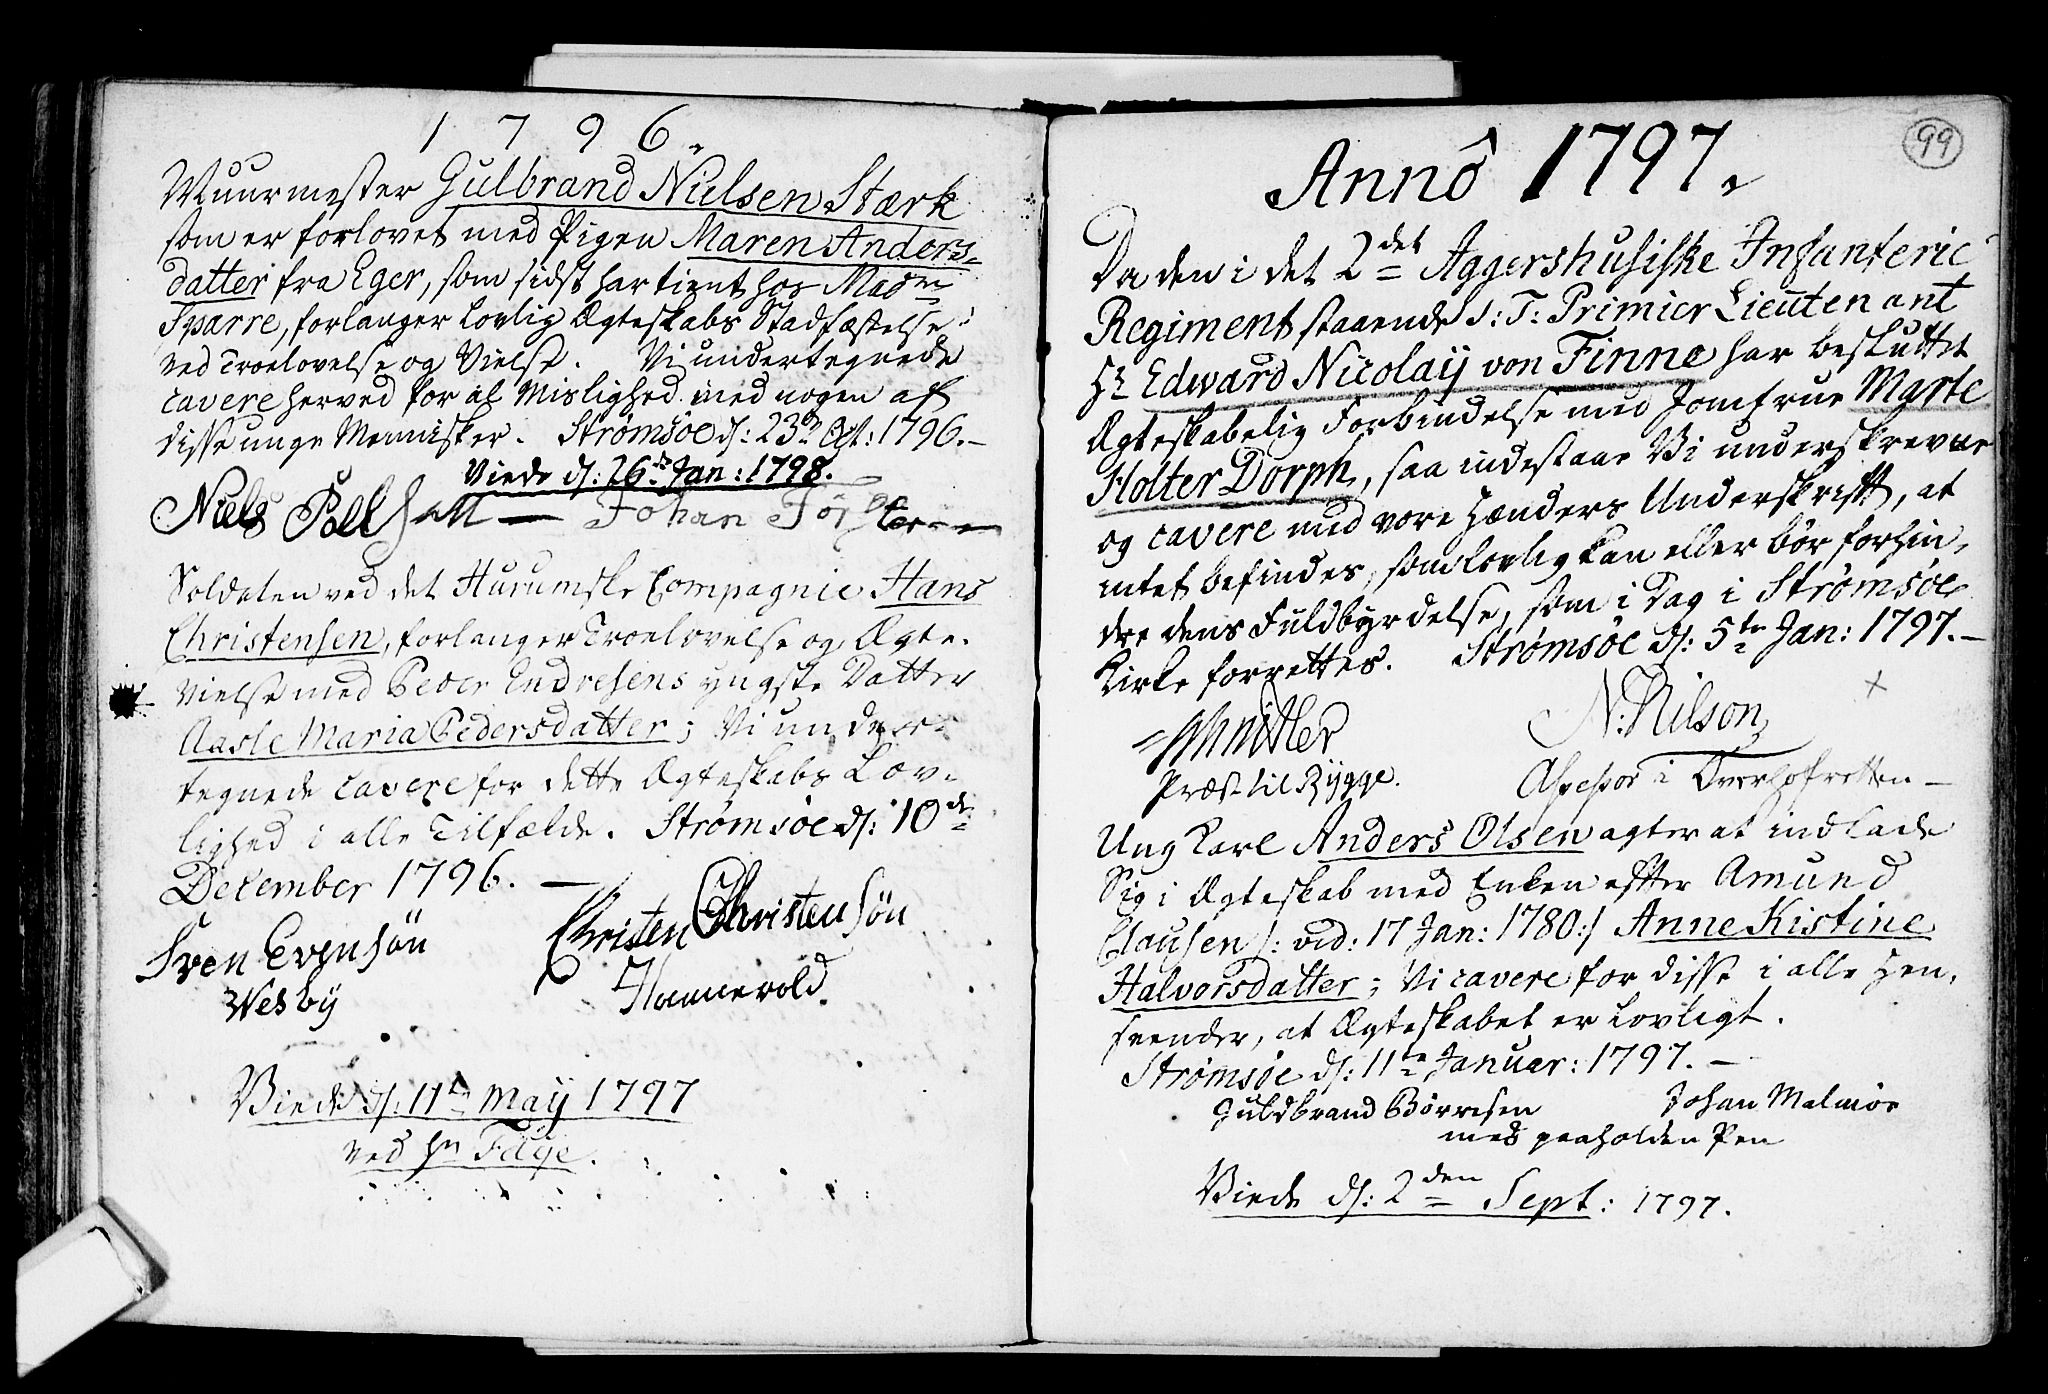 1796.
Muurmester Gulbrand Nielsen Stærk
som er forlovet med Pigen Maren Anders-
datter fra Eger, som sidst har tient hos Madme
Sparre, forlanger lovlig Ægteskabs Stadfæstelse
ved Troelovelse og Vielse. Vi undertegnede
cavere herved for al Mislighed med nogen af
disse unge Mennisker. Strømsøe d: 23de Oct: 1796.-
Viede d: 26de Jan: 1798.
Niels Poel Johan
Soldaten ved det Hurumske Compagnie Hans
Christensen, forlanger Troelovelse og Ægte-
vielse med Peder Endresens yngste Datter
Aasle Maria Pedersdatter; Vi under-
tegnede cavere for dette Ægteskabs Lov-
lighed i alle Tilfælde. Strømsøe d: 10de
December 1796. -
Sven Evensøn Christen Christensøn
Wesby Hannevold.
Viede d: 11te May 1797
ved Hr Faye.
99
Annô 1797.
Da den i det 2det Aggershusiske Infanterie
Regiment staaende S: T: Primier Lieutenant
Hr Edward Nicolaij von Finne har besluttet
Ægteskabelig Forbindelse med Jomfrue Marte
Holter Dorph, saa indestaae Vi underskrevne
og cavere med vore Hænders Underskrift, at
intet befindes, som lovlig kan eller bør forhin-
dre dens Fuldbyrdelse, som i Dag i Strømsøe
Kirke forrettes. Strømsøe d: 5te Jan: 1797.-
Schnitler N: Nilson
Præst til Rygge. Assessor i Overhofretten -
Ung Karl Anders Olsen agter at indlade
Sig i Ægteskab med Enken efter Amund
Clausen /: vid: 17 Jan: 1780:/ Anne Kistine
Halvorsdatter; Vi cavere for disse i alle Hen-
seender, at Ægteskabet er lovligt.
Strømsøe d: 11te Januar: 1797. -
Guldbrand Børresen Johan Malmöe
med paaholden Pen
Viede d: 2den Sept: 1797.